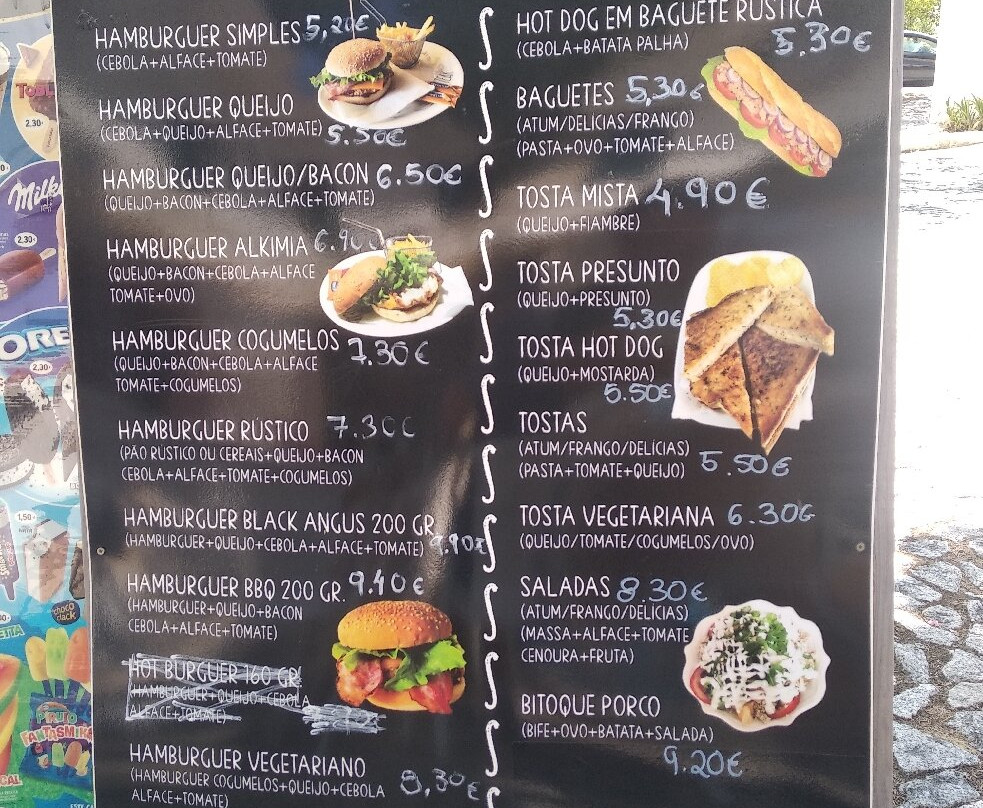 HAMBURGUER SIMPLES 5,20€
(CEBOLA+ALFACE+TOMATE)
HAMBURGUER QUEIJO
(CEBOLA+QUEIJO+ALFACE+TOMATE)
5.50€
HAMBURGUER QUEIJO/BACON 6.50€
(QUEIJO+BACON+CEBOLA+ALFACE+TOMATE)
HAMBURGUER ALKIMIA
(QUEIJO+BACON+CEBOLA+ALFACE
TOMATE+OVO)
HAMBURGUER COGUMELOS 7.30€
(QUEIJO+BACON+CEBOLA+ALFACE
TOMATE+COGUMELOS)
HAMBURGUER RÚSTICO 7.30€
(PÃO RÚSTICO OU CEREAIS+QUEIJO+BACON
CEBOLA+ALFACE+TOMATE+COGUMELOS)
HAMBURGUER BLACK ANGUS 200 GR.
(HAMBURGUER+QUEIJO+CEBOLA+ALFACE+TOMATE) 9.90€
HAMBURGUER BBQ 200 GR. 9.40€
(HAMBURGUER+QUEIJO+BACON
CEBOLA+ALFACE+TOMATE)
HOT BURGUER 160 GR.
(HAMBURGUER+QUEIJO+CEBOLA
ALFACE+TOMATE)
HAMBURGUER VEGETARIANO
(HAMBURGUER COGUMELOS+QUEIJO+CEBOLA 8,30€
ALFACE+TOMATE)
HOT DOG EM BAGUETE RÚSTICA
(CEBOLA+BATATA PALHA) 5.30€
BAGUETES 5,30€
(ATUM/DELÍCIAS/FRANGO)
(PASTA+OVO+TOMATE+ALFACE)
TOSTA MISTA 4.90€
(QUEIJO+FIAMBRE)
TOSTA PRESUNTO
(QUEIJO+PRESUNTO)
5,30€
TOSTA HOT DOG
(QUEIJO+MOSTARDA)
5.50€
TOSTAS
(ATUM/FRANGO/DELÍCIAS)
(PASTA+TOMATE+QUEIJO) 5.50€
TOSTA VEGETARIANA 6.30€
(QUEIJO/TOMATE/COGUMELOS/OVO)
SALADAS 8.30€
(ATUM/FRANGO/DELÍCIAS)
(MASSA+ALFACE+TOMATE
CENOURA+FRUTA)
BITOQUE PORCO
(BIFE+OVO+BATATA+SALADA)
9.20€
2.30€
Milka
2,30€
OREO
2,30€
1,50€
choco clack
PINTO
FANTASMIKO